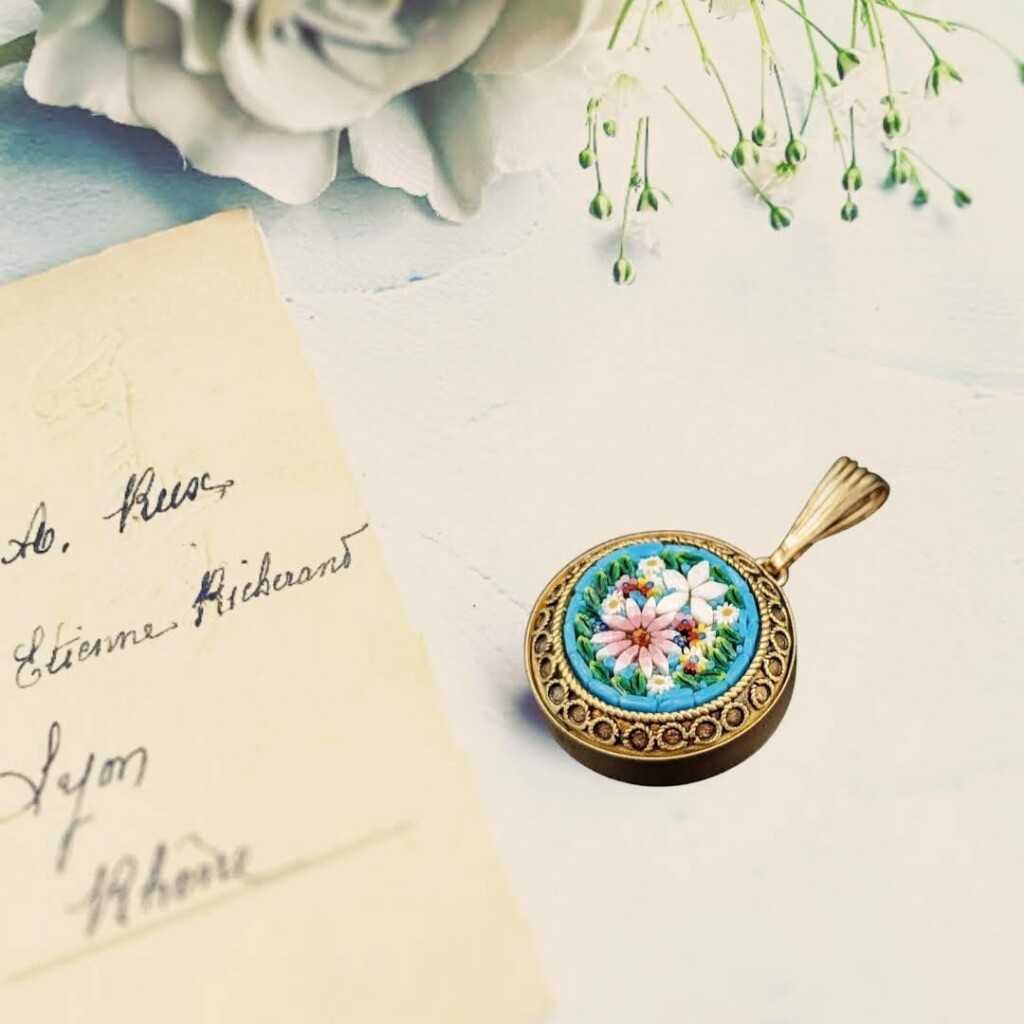 Rue
Etienne Richerand
Lyon
Rhône